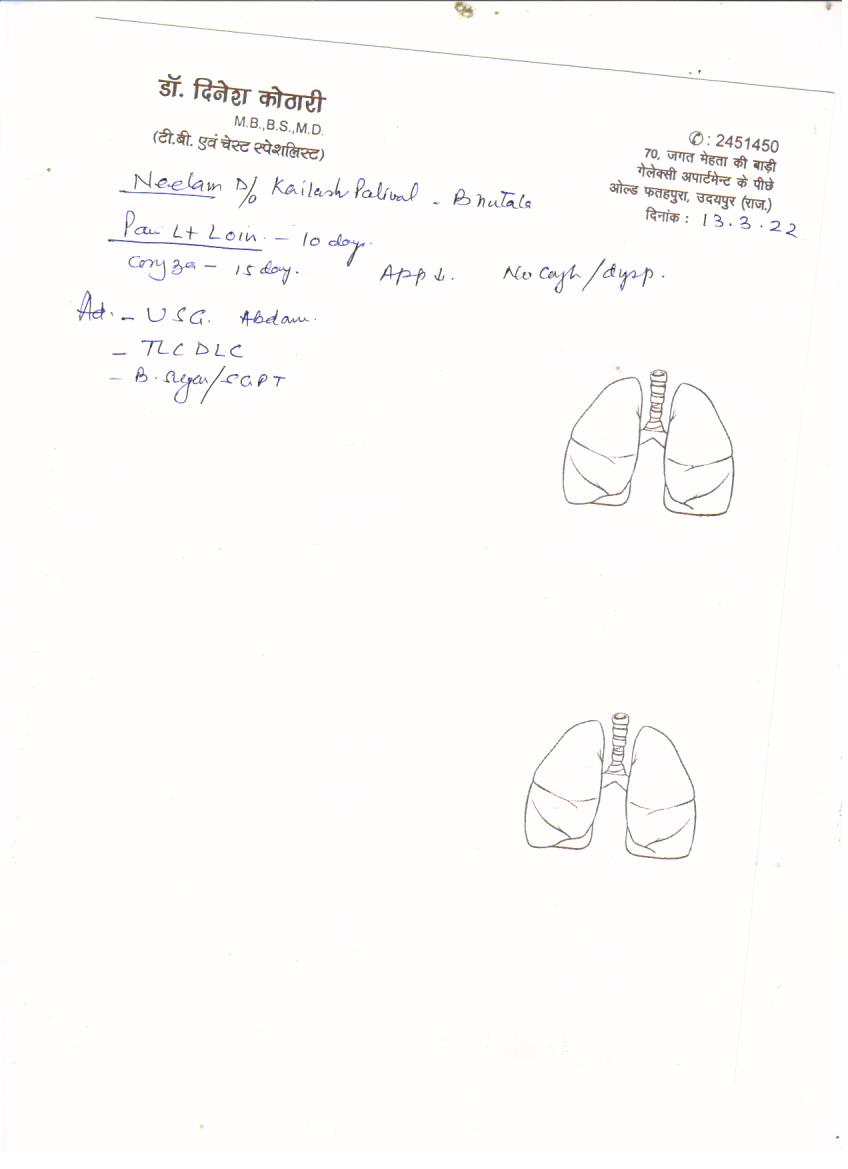 डॉ. दिनेश कोठारी
M.B.,B.S.,M.D.
(टी.बी. एवं चेस्ट स्पेशलिस्ट)
✆ : 2451450
70, जगत मेहता की बाड़ी
गेलेक्सी अपार्टमेन्ट के पीछे
ओल्ड फतहपुरा, उदयपुर (राज.)
दिनांक : 13.3.22
Neelam D/o Kailash Paliwal - Bhutala
Pain Lt Loin - 10 days.
Coryza - 15 day. App ↓. No Cough/dysp.
Ad. - USG. Abdom.
- TLC DLC
- B. Sugar/SGPT